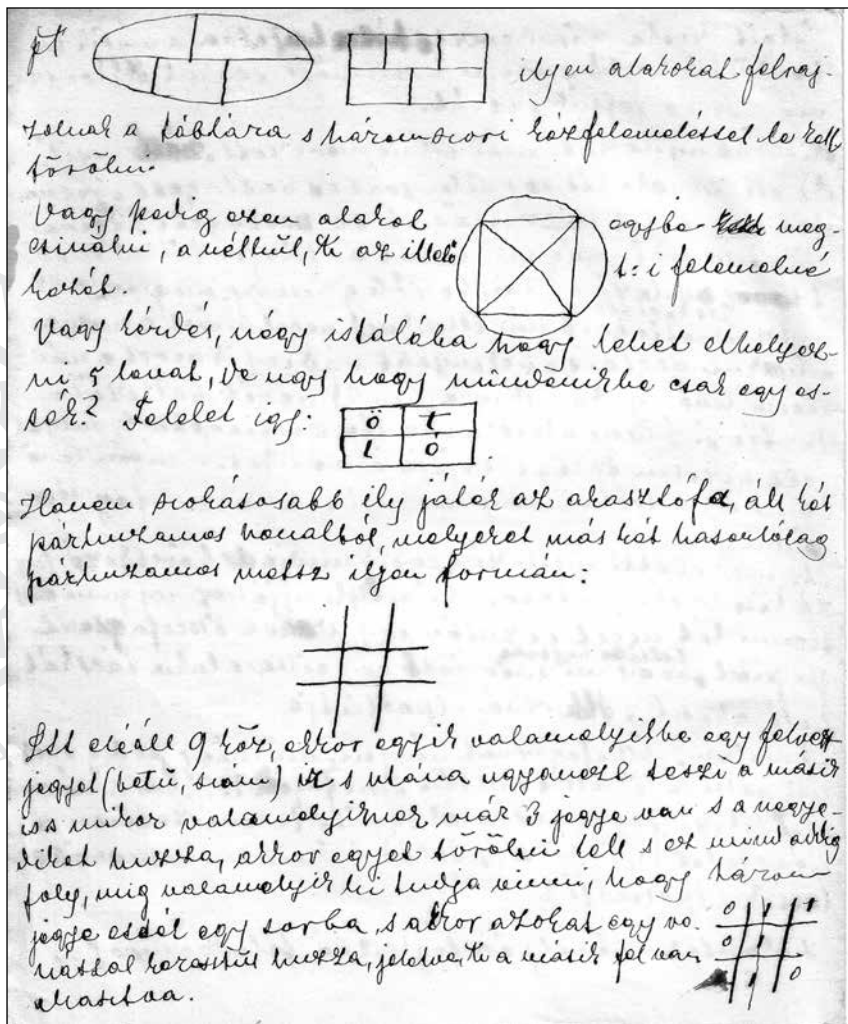 pt ilyen alakokat felraj-
zolnak a táblára s háromszori kézfelemeléssel le kell
törölni.
Vagy pedig ezen alakot egybe meg-
csinálni, a nélkül, k az illető t: i felemelné
kezét.
Vagy kérdés, négy istálóba hogy lehet elhelyez-
ni 5 lovat, de ugy hogy mindenikbe csak egy es-
sék? Felelet igy: ö t
l ó
Hanem szokásosabb ily játék az akasztófa, áll két
párhuzamos vonalból, melyeket más két hasonlólag
párhuzamos metsz ilyen formán:
Itt eléáll 9 köz, ekkor egyik valamelyikbe egy felvett
jegyet (betű, szám) ir s utána ugyanezt teszi a másik
is s mikor valamelyiknek már 3 jegye van s a negye-
diket huzza, akkor egyet törölni kell s ez mind addig
foly, mig valamelyik ki tudja vinni, hogy három
jegye essék egy sorba, s akkor azokat egy vo-
nással keresztül huzza, jelelve, k a másik fel van
akasztva.
0 1 1
0 1
1 0